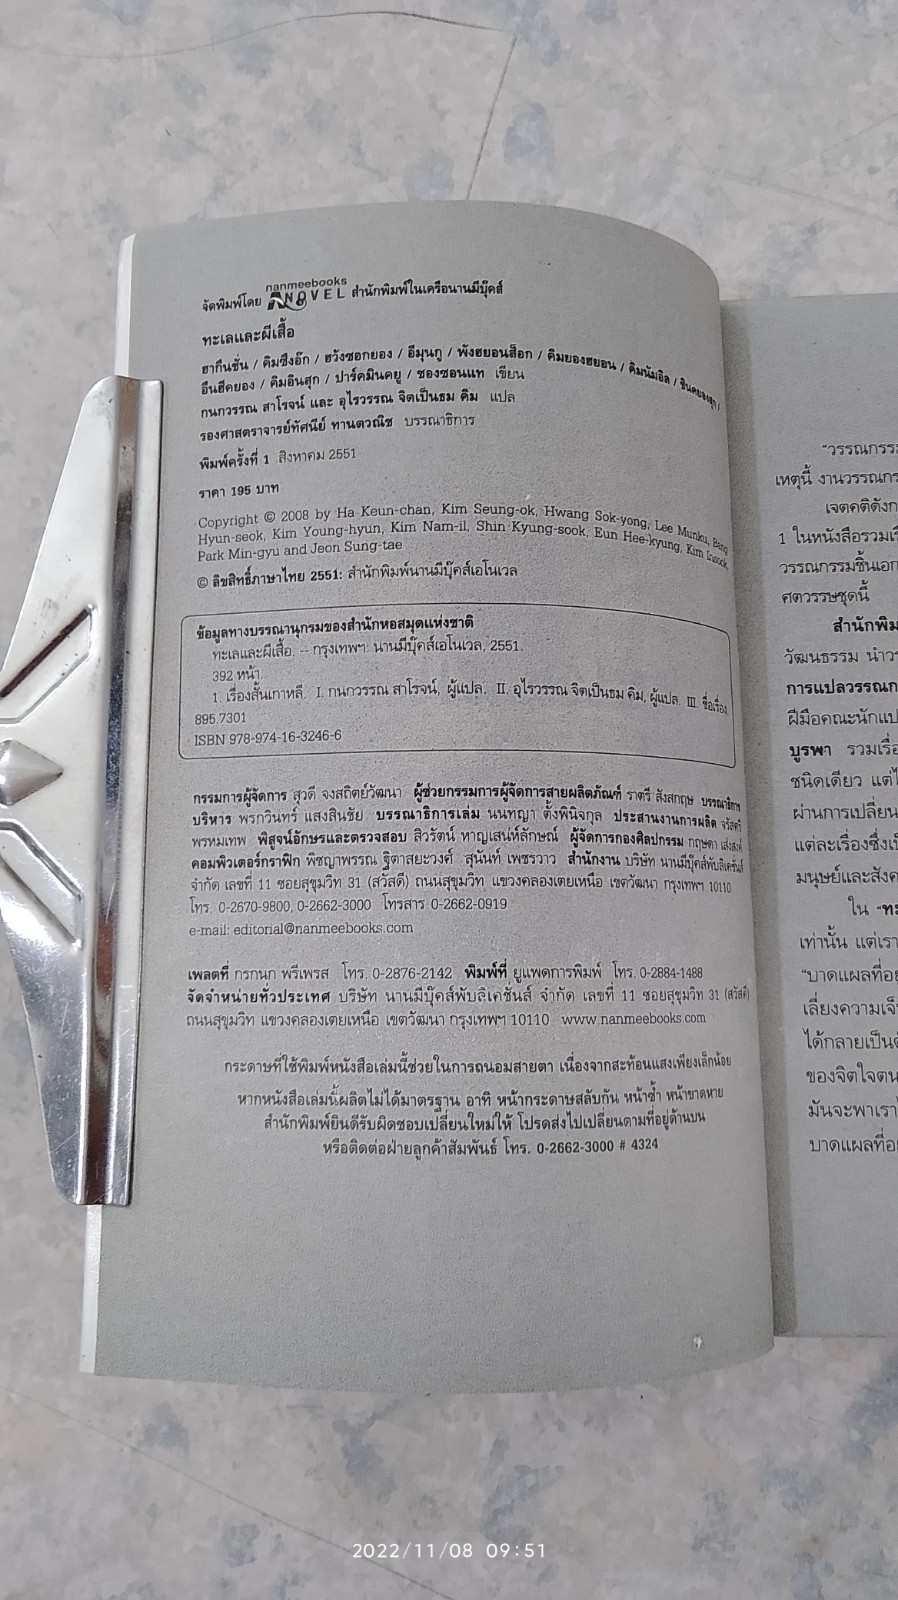 จัดพิมพ์โดย nanmeebooks NOVEL สำนักพิมพ์ในเครือนานมีบุ๊คส์
ทะเลและผีเสื้อ
ฮากึนชั่น / คิมซึงอ๊ก / ฮวังซอกยอง / อีมุนกู / พังฮยอนส็อก / คิมยองฮยอน / คิมนัมอิล / ชินคยองสุก /
อึนฮีคยอง / คิมอินสุก / ปาร์คมินคยู / ชองซอนแท เขียน
กนกวรรณ สาโรจน์ และ อุไรวรรณ จิตเป็นธม คิม แปล
รองศาสตราจารย์ทัศนีย์ ทานตวณิช บรรณาธิการ
พิมพ์ครั้งที่ 1 สิงหาคม 2551
ราคา 195 บาท
Copyright © 2008 by Ha Keun-chan, Kim Seung-ok, Hwang Sok-yong, Lee Munku, Bang
Hyun-seok, Kim Young-hyun, Kim Nam-il, Shin Kyung-sook, Eun Hee-kyung, Kim Insook,
Park Min-gyu and Jeon Sung-tae
© ลิขสิทธิ์ภาษาไทย 2551: สำนักพิมพ์นานมีบุ๊คส์เอโนเวล
ข้อมูลทางบรรณานุกรมของสำนักหอสมุดแห่งชาติ
ทะเลและผีเสื้อ. -- กรุงเทพฯ: นานมีบุ๊คส์เอโนเวล, 2551.
392 หน้า.
1. เรื่องสั้นเกาหลี. I. กนกวรรณ สาโรจน์, ผู้แปล. II. อุไรวรรณ จิตเป็นธม คิม, ผู้แปล. III. ชื่อเรื่อง
895.7301
ISBN 978-974-16-3246-6
กรรมการผู้จัดการ สุวดี จงสถิตย์วัฒนา ผู้ช่วยกรรมการผู้จัดการสายผลิตภัณฑ์ ราตรี สังสกฤษ บรรณาธิการ
บริหาร พรกวินทร์ แสงสินชัย บรรณาธิการเล่ม นนทญา ตั้งพินิจกุล ประสานงานการผลิต จรัสศรี
พรหมเทพ พิสูจน์อักษรและตรวจสอบ สิวรัตน์ หาญเสน่ห์ลักษณ์ ผู้จัดการกองศิลปกรรม กฤษดา เส่งสงค์
คอมพิวเตอร์กราฟิก พิชญาพรรณ ฐิตาสยะวงศ์ สุนันท์ เพชรวาว สำนักงาน บริษัท นานมีบุ๊คส์พับลิเคชั่นส์
จำกัด เลขที่ 11 ซอยสุขุมวิท 31 (สวัสดี) ถนนสุขุมวิท แขวงคลองเตยเหนือ เขตวัฒนา กรุงเทพฯ 10110
โทร. 0-2670-9800, 0-2662-3000 โทรสาร 0-2662-0919
e-mail: editorial@nanmeebooks.com
เพลตที่ กรกนก พรีเพรส โทร. 0-2876-2142 พิมพ์ที่ ยูแพดการพิมพ์ โทร. 0-2884-1488
จัดจำหน่ายทั่วประเทศ บริษัท นานมีบุ๊คส์พับลิเคชั่นส์ จำกัด เลขที่ 11 ซอยสุขุมวิท 31 (สวัสดี)
ถนนสุขุมวิท แขวงคลองเตยเหนือ เขตวัฒนา กรุงเทพฯ 10110 www.nanmeebooks.com
กระดาษที่ใช้พิมพ์หนังสือเล่มนี้ช่วยในการถนอมสายตา เนื่องจากสะท้อนแสงเพียงเล็กน้อย
หากหนังสือเล่มนี้ผลิตไม่ได้มาตรฐาน อาทิ หน้ากระดาษสลับกัน หน้าซ้ำ หน้าขาดหาย
สำนักพิมพ์ยินดีรับผิดชอบเปลี่ยนใหม่ให้ โปรดส่งไปเปลี่ยนตามที่อยู่ด้านบน
หรือติดต่อฝ่ายลูกค้าสัมพันธ์ โทร. 0-2662-3000 # 4324
"วรรณกรรม
เหตุนี้ งานวรรณกร
เจตคติดังก
1 ในหนังสือรวมเรื
วรรณกรรมชิ้นเอก
ศตวรรษชุดนี้
สำนักพิม
วัฒนธรรม นำวร
การแปลวรรณก
ฝีมือคณะนักแป
บูรพา รวมเรื่อ
ชนิดเดียว แต่ไ
ผ่านการเปลี่ยน
แต่ละเรื่องซึ่งเป็
มนุษย์และสังค
ใน "ทะ
เท่านั้น แต่เรา
"บาดแผลที่อย
เลี่ยงความเจ็
ได้กลายเป็นต
ของจิตใจตน
มันจะพาเราไ
บาดแผลที่อย
2022/11/08 09:51